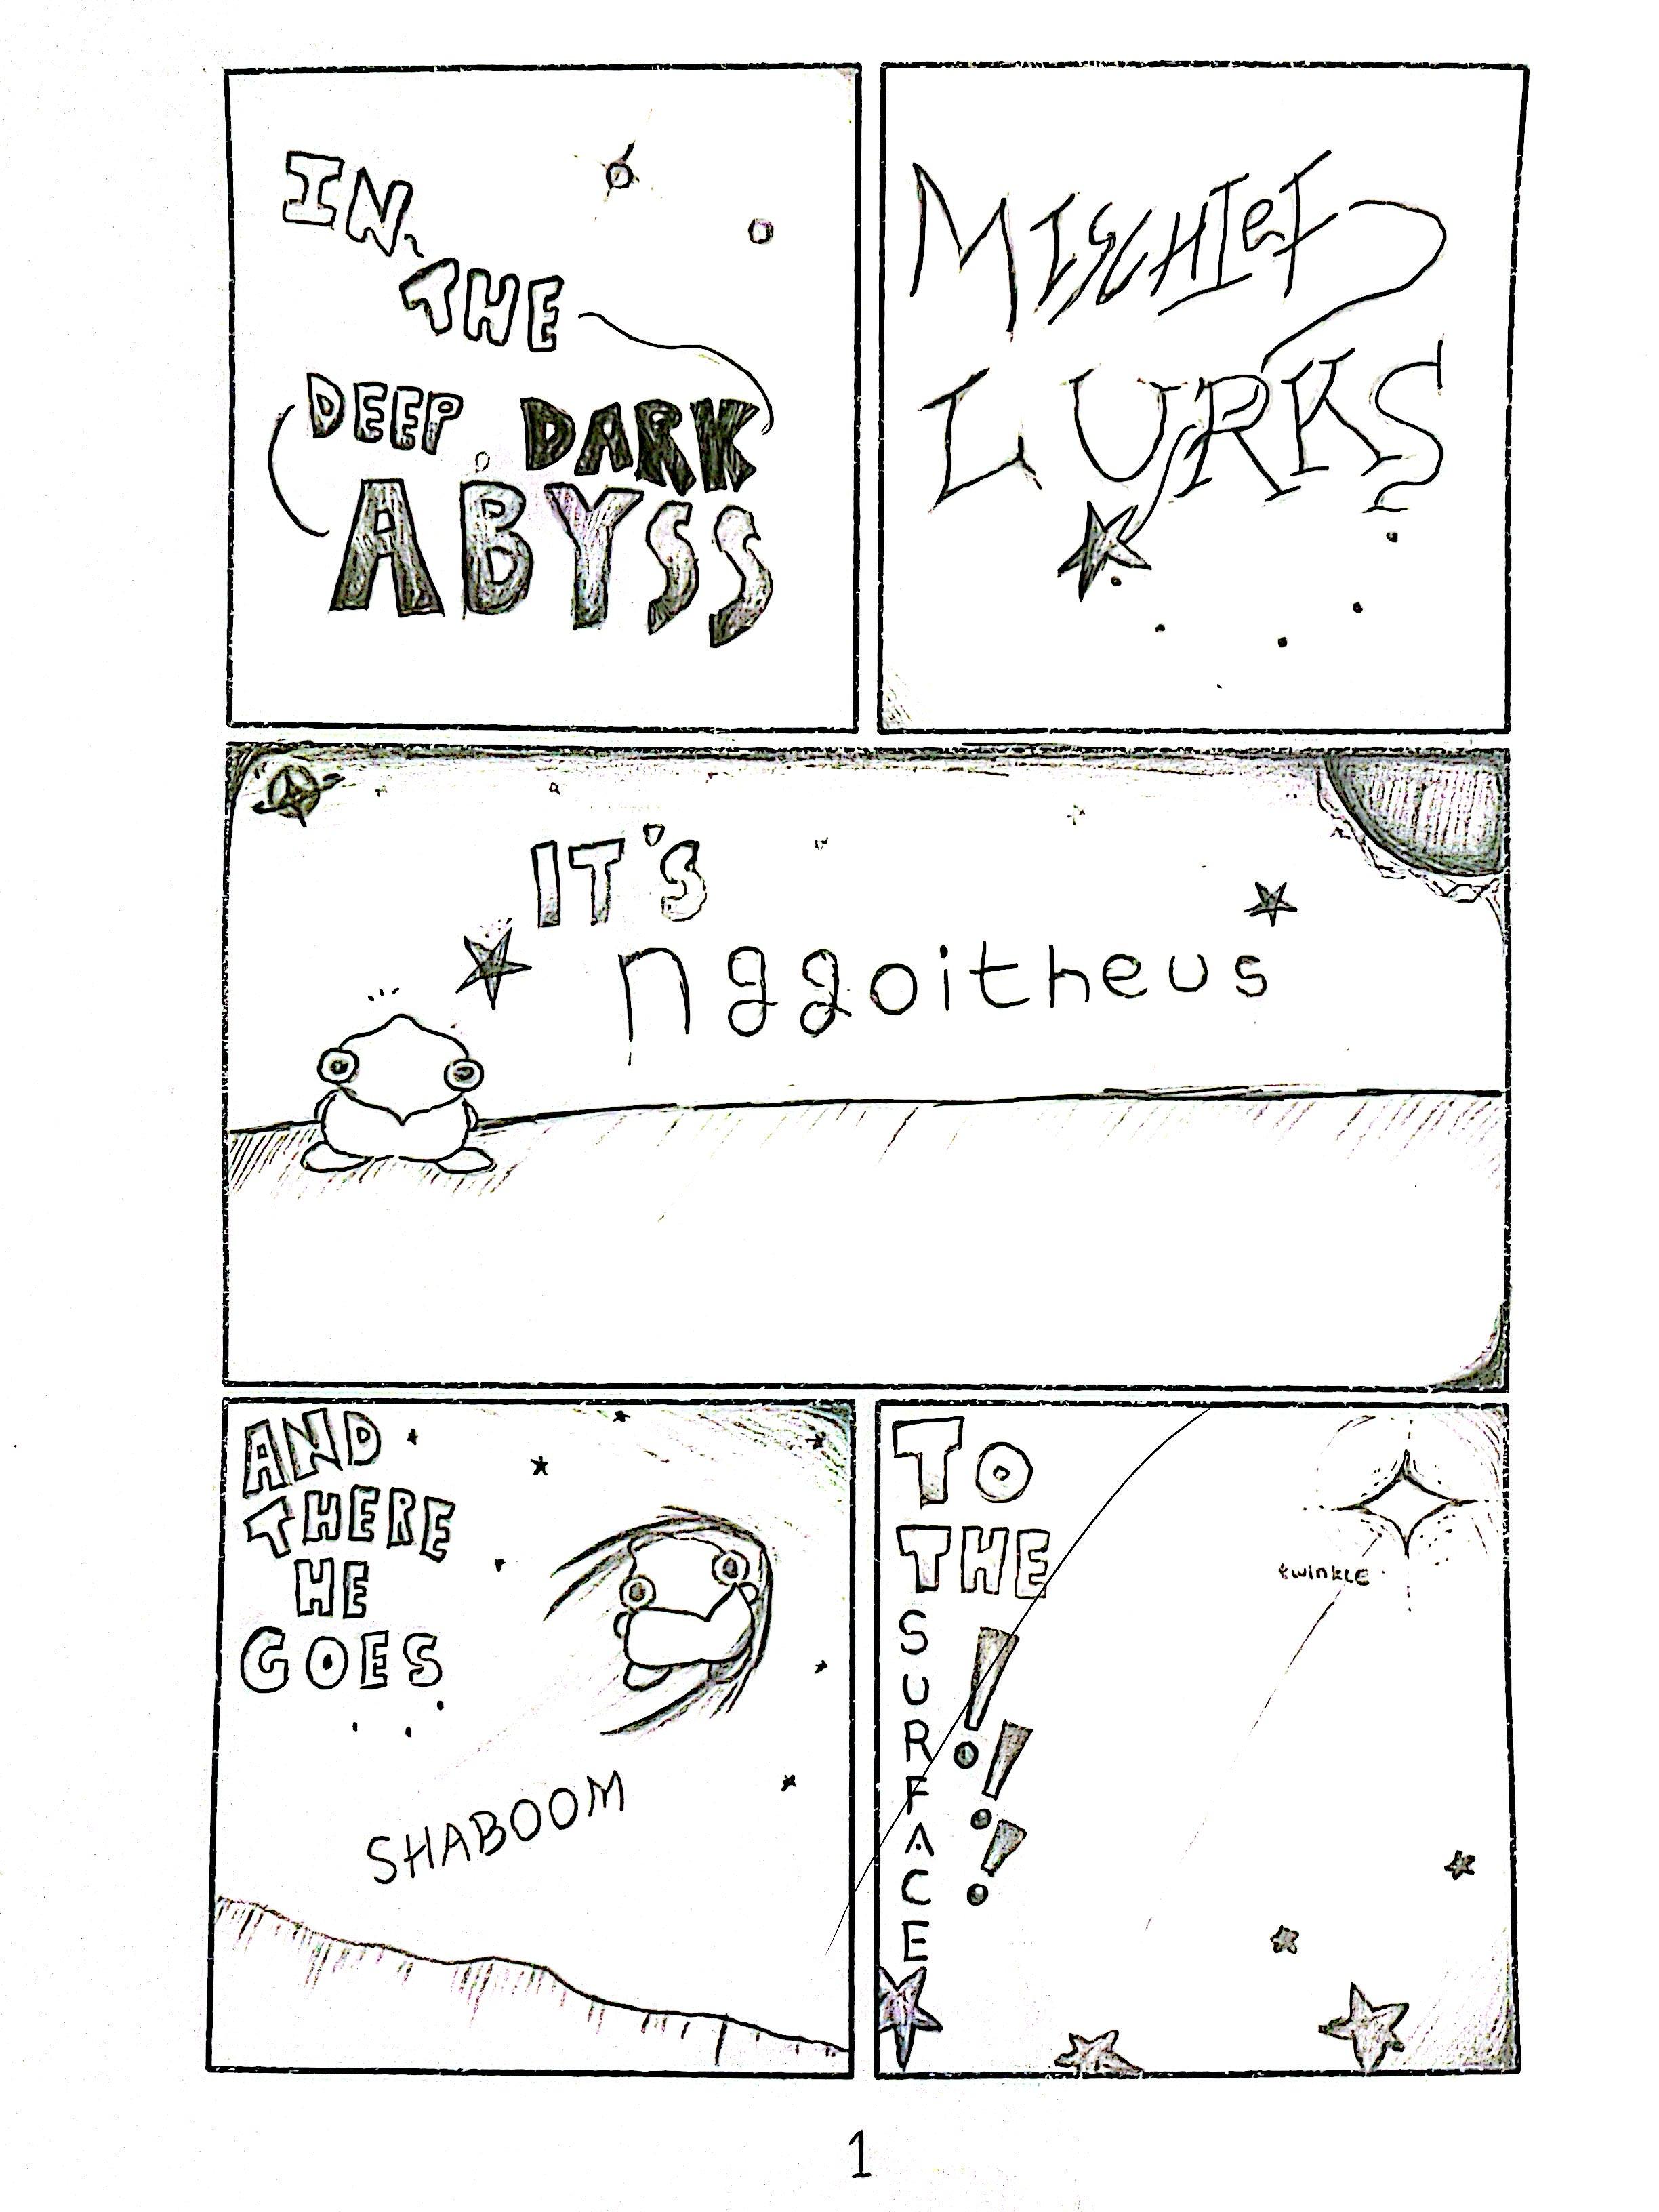 IN
THE
DEEP DARK
ABYSS
MIscHIeF
LURKS
IT'S
nggoitheus
AND
THERE
HE
GOES
...
SHABOOM
TO
THE
SURFACE!!!
twinkLE
1